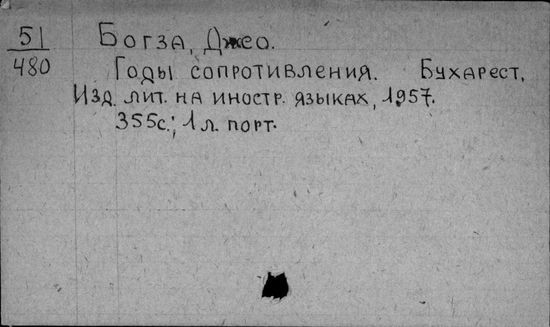 51 Богза, Джео.
480 Годы сопротивления. Бухарест,
Изд. лит. на иностр. языках, 1957.
355с.; 1 л. порт.